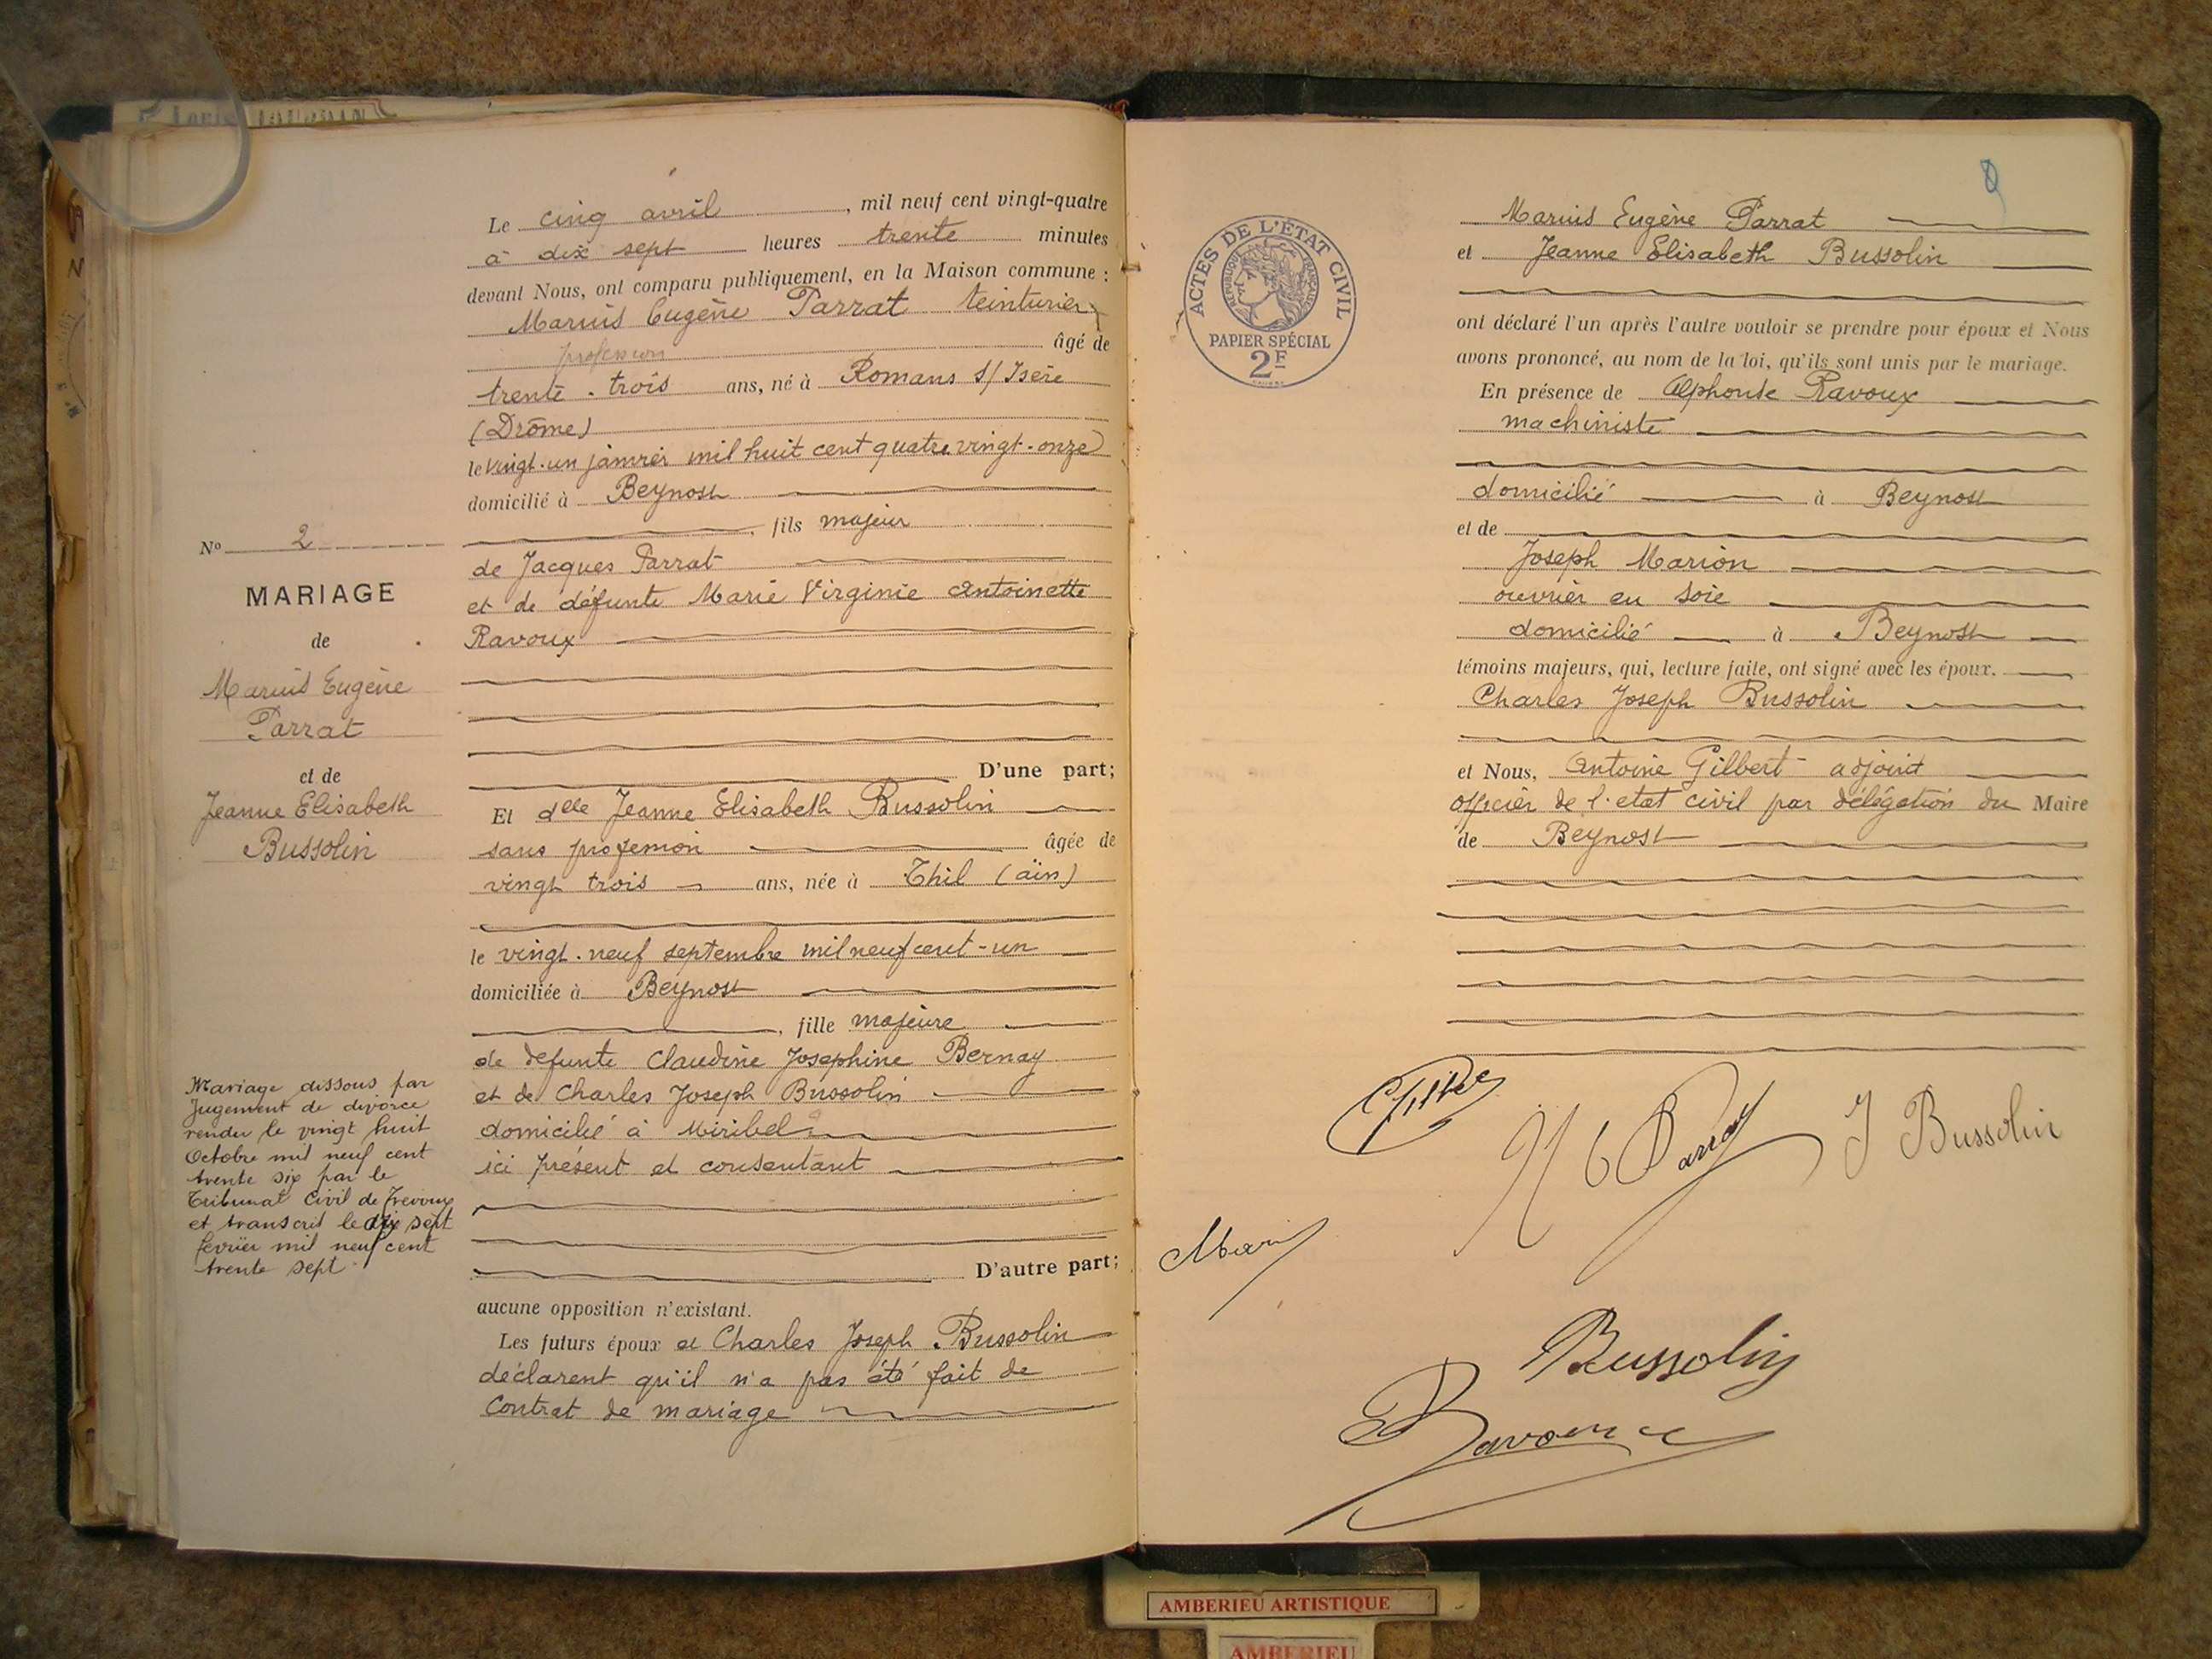 Louis JOURDAIN
Le cinq avril, mil neuf cent vingt-quatre
à dix sept heures trente minutes
devant Nous, ont comparu publiquement, en la Maison commune :
Marius Eugène Parrat teinturier
profession âgé de
trente-trois ans, né à Romans s/ Isère
(Drôme)
le vingt-un janvier mil huit cent quatre vingt-onze
domicilié à Beynost
, fils majeur
de Jacques Parrat
et de défunte Marie Virginie Antoinette
Ravoux
D'une part;
Et delle Jeanne Elisabeth Bussolin
sans profession âgée de
vingt trois ans, née à Thil (ain)
le vingt-neuf septembre mil neuf cent-un
domiciliée à Beynost
, fille majeure
de defunte Claudine Josephine Bernay
et de Charles Joseph Bussolin
domicilié à Miribel
ici présent et consentant
D'autre part;
aucune opposition n'existant.
Les futurs époux et Charles Joseph Bussolin
déclarent qu'il n'a pas été fait de
contrat de mariage
No 2
MARIAGE
de
Marius Eugène
Parrat
et de
Jeanne Elisabeth
Bussolin
Mariage dissous par
Jugement de divorce
rendu le vingt huit
Octobre mil neuf cent
trente six par le
Tribunal Civil de Trevoux
et transcrit le dix sept
février mil neuf cent
trente sept.
ACTES DE L'ÉTAT CIVIL
RÉPUBLIQUE FRANÇAISE
PAPIER SPÉCIAL
2F
Marius Eugène Parrat
et Jeanne Elisabeth Bussolin
ont déclaré l'un après l'autre vouloir se prendre pour époux et Nous
avons prononcé, au nom de la loi, qu'ils sont unis par le mariage.
En présence de Alphonse Ravoux
machiniste
domicilié à Beynost
et de
Joseph Marion
ouvrier en soie
domicilié à Beynost
témoins majeurs, qui, lecture faite, ont signé avec les époux.
Charles Joseph Bussolin
et Nous, Antoine Gilbert adjoint
officier de l'etat civil par délégation du Maire
de Beynost
M E Parrat
J Bussolin
Bussolin
Ravoux
AMBERIEU ARTISTIQUE
AMBERIEU